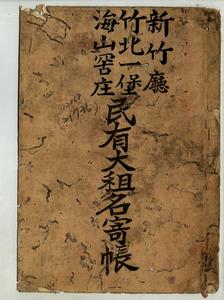 新竹廳
竹北一堡
海山罟庄
民有大租名寄帳